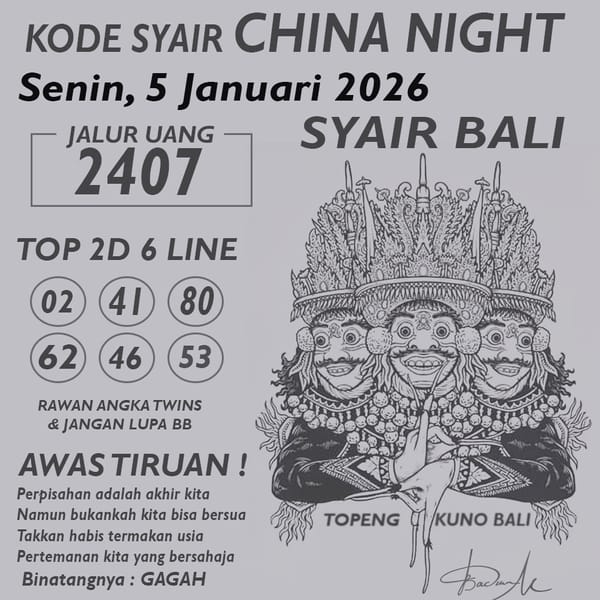 KODE SYAIR CHINA NIGHT
Senin, 5 Januari 2026
JALUR UANG
2407
SYAIR BALI
TOP 2D 6 LINE
02 41 80
62 46 53
RAWAN ANGKA TWINS
& JANGAN LUPA BB
AWAS TIRUAN !
Perpisahan adalah akhir kita
Namun bukankah kita bisa bersua
Takkan habis termakan usia
Pertemanan kita yang bersahaja
Binatangnya : GAGAH
TOPENG KUNO BALI